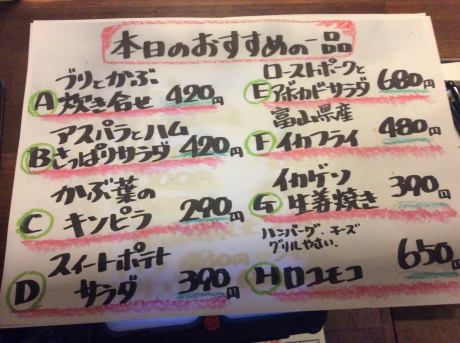 本日のおすすめの一品
ブリとかぶ
A 炊き合せ 420円
アスパラとハム
B さっぱりサラダ 420円
かぶ葉の
C キンピラ 290円
スイートポテト
D サラダ 390円
ローストポークと
E アボカドサラダ 680円
富山県産
F イカフライ 480円
イカゲソ
G 生姜焼き 390円
ハンバーグ、チーズ
グリルやさい、
H ロコモコ 650円